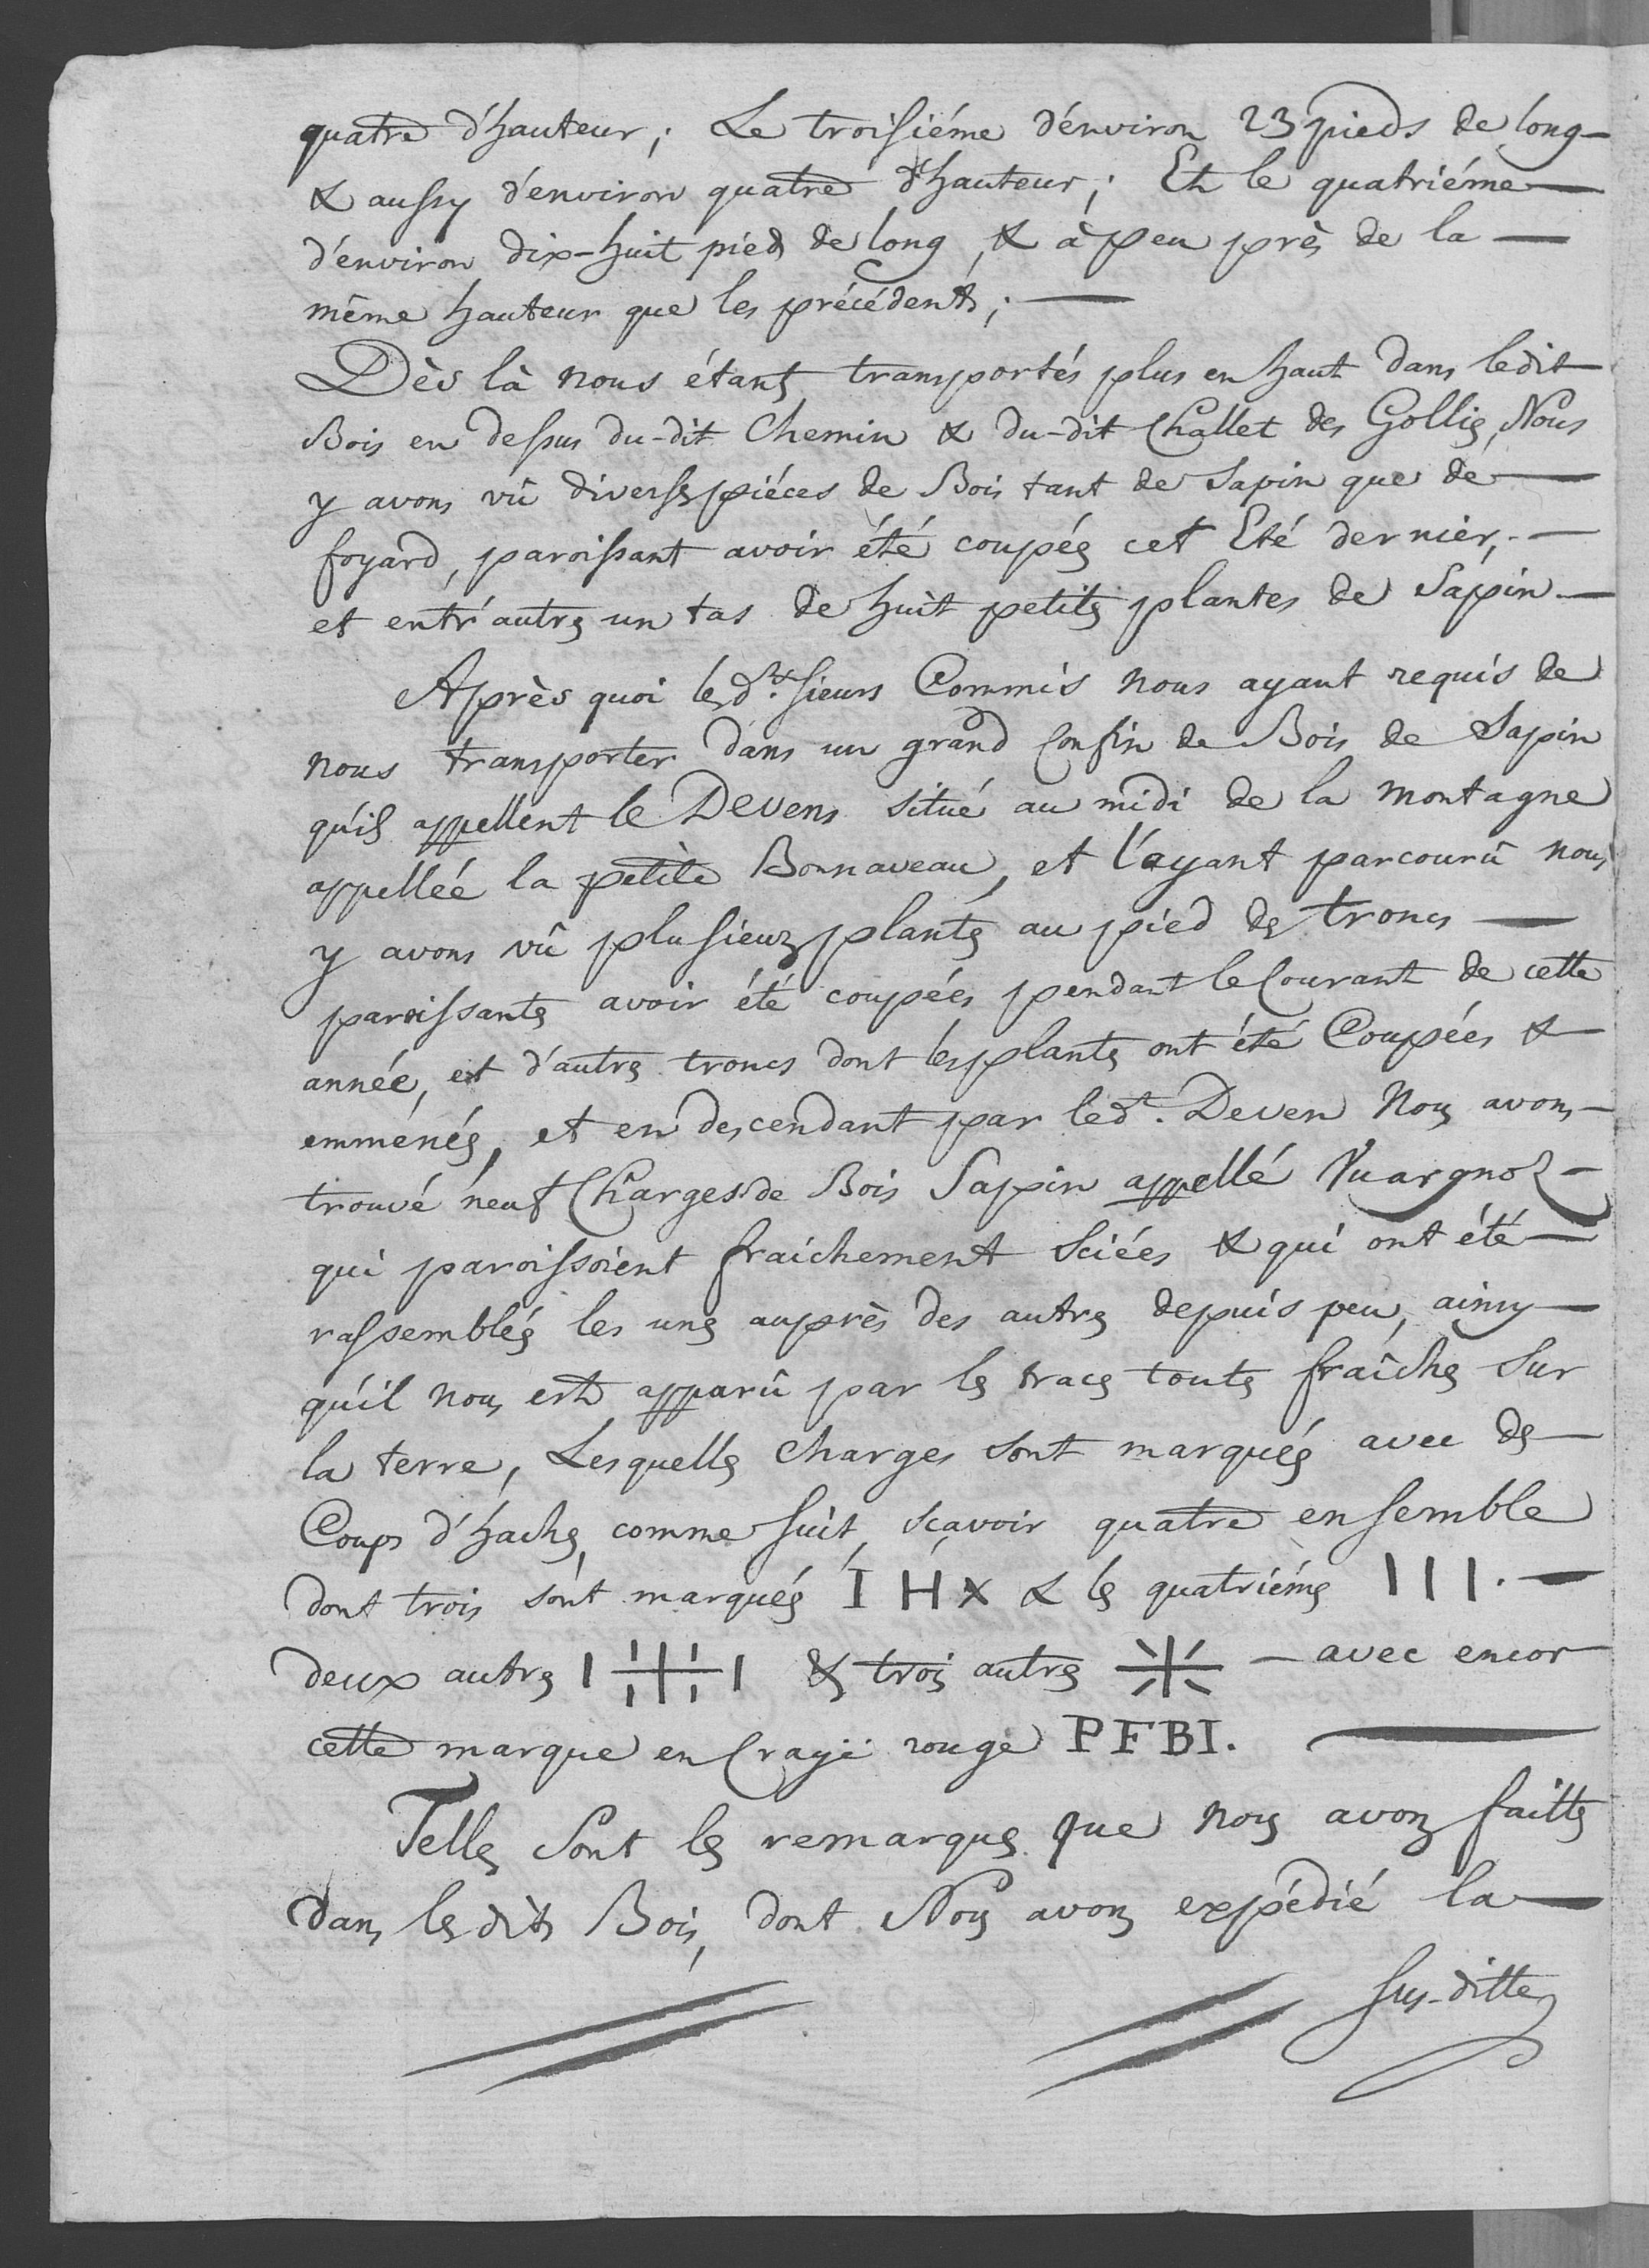 quatre d'hauteur; Le troisiéme d'énviron 23 pieds de long —
& aussy d'énviron quatre d'hauteur; Et le quatriéme —
d'énviron dix-huit pieds de long, & à peu près de la —
même hauteur que les précédents; —
Dès là nous étants transportés plus en haut dans ledit
Bois en dessus du-dit Chemin & du-dit Challet des Gollies, Nous
y avons vû diverses piéces de Bois tant de Sapin que de —
foyard, paroissant avoir été coupés cet Eté dernier, —
et entr'autres un tas de huit petites plantes de Sapin —
Après quoi lesd.ts sieurs Commis nous ayant requis de
nous transporter dans un grand Confin de Bois de Sapin
qu'ils appellent le Devens situé au midi de la montagne
appellée la petite Bonnaveau, et l'ayant parcourû nous
y avons vû plusieurs plantes au pied des troncs —
paroissantes avoir été coupées pendant le Courant de cette
année, et d'autres troncs dont les plantes ont été Coupées &
emménés, et en descendant par led.t Deven Nous avons —
trouvé neuf Charges de Bois Sapin appellé Vuargnoz —
qui paroissoient fraichement sciées & qui ont été —
rassemblés les uns auprès des autres depuis peu, ainsy —
qu'il nous est apparû par les traces toutes fraîches sur
la terre, Lesquelles charges sont marqués avec des —
Coups d'haches, comme suit, sçavoir quatre ensemble
dont trois sont marqués I H X & les quatriémes I I I. —
deux autres & trois autres — avec encor
cette marque en Craye rouge P F B I. —
Telles sont les remarques que nous avons faittes
dans lesdits Bois, dont Nous avons expédié la —
sus-ditte